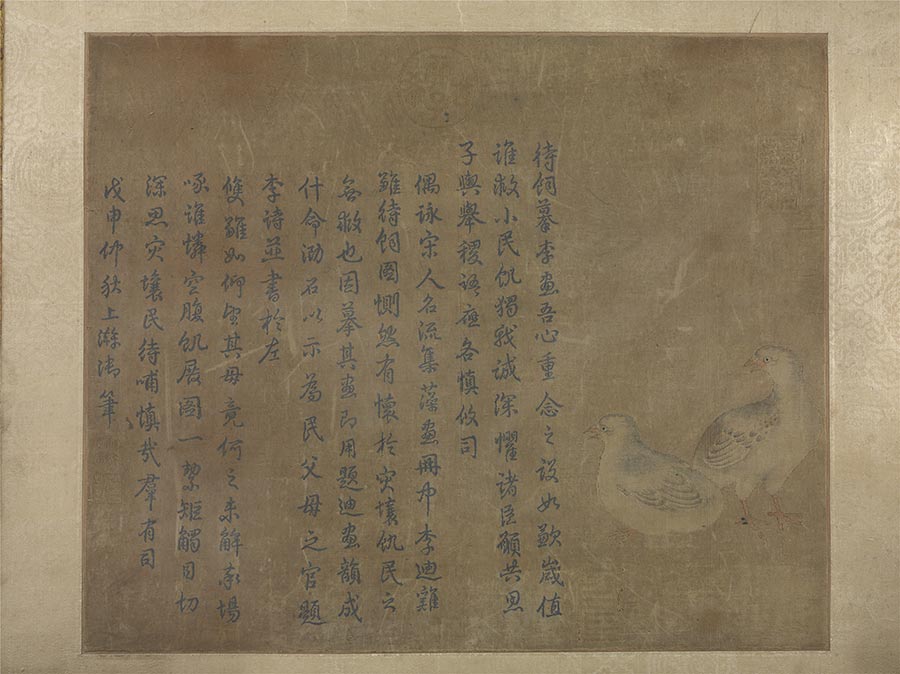 待飼摹李畫吾心重念之設如歉歲值
誰救小民飢獨我誠深懼諸臣願共思
子輿舉稷語應各慎攸司
偶詠宋人名流集藻畫冊中李迪雞
雛待飼圖惻然有懷於灾壤飢民之
無救也因摹其畫即用題迪畫韻成
什命泐石以示為民父母之官題
李詩並書於左
雙雛如仰望其母竟何之未解求場
啄誰憐空腹飢展圖一絜矩觸目切
深思灾壤民待哺慎哉羣有司
戊申仲秋上澣御筆